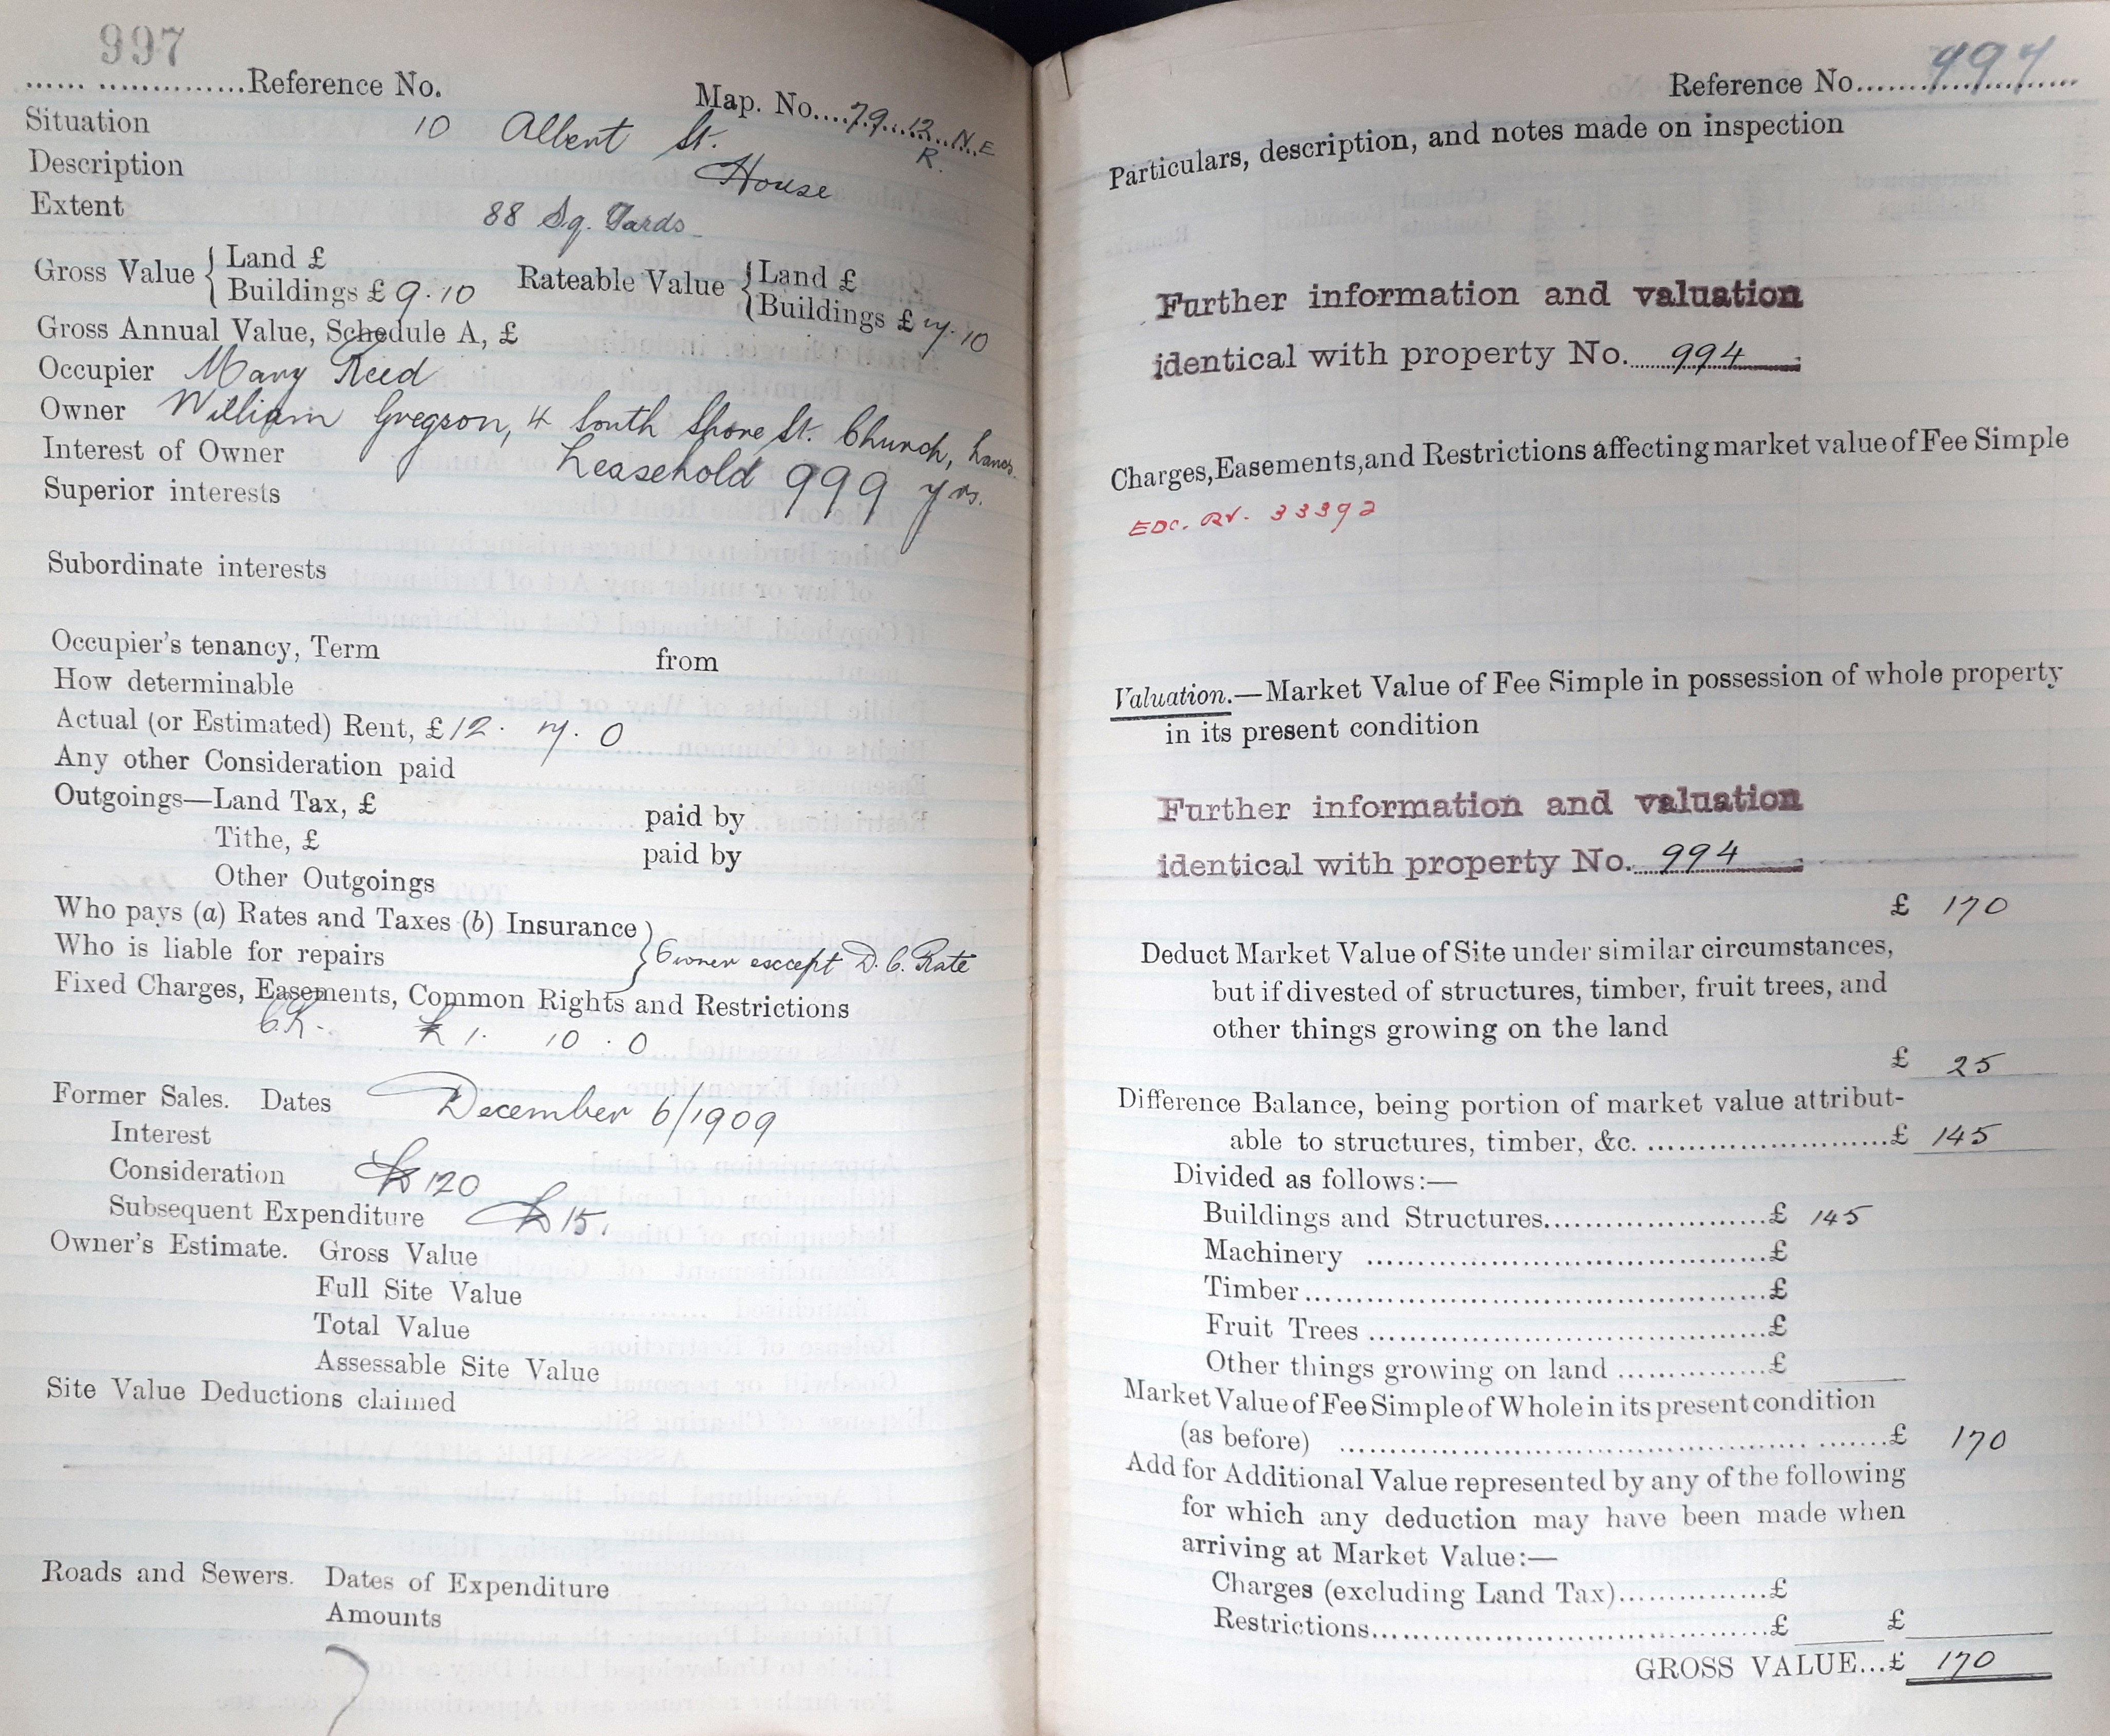 997
...... ...............Reference No.
Map. No....79...12...N.E
R.
Situation 10 Albert St.
Description House
Extent 88 Sq. Yards
Gross Value { Land £
Buildings £ 9.10
Rateable Value { Land £
Buildings £ 7.10
Gross Annual Value, Schedule A, £
Occupier Mary Reed
Owner William Gregson, 4 South Shore St. Church, Lancs.
Interest of Owner Leasehold 999 yrs.
Superior interests
Subordinate interests
Occupier's tenancy, Term from
How determinable
Actual (or Estimated) Rent, £ 12. 7. 0
Any other Consideration paid
Outgoings—Land Tax, £ paid by
Tithe, £ paid by
Other Outgoings
Who pays (a) Rates and Taxes (b) Insurance }
Who is liable for repairs } Owner except D.C. Rate
Fixed Charges, Easements, Common Rights and Restrictions
C.R. £1. 10. 0
Former Sales. Dates December 6/1909
Interest
Consideration £120
Subsequent Expenditure £15.
Owner's Estimate. Gross Value
Full Site Value
Total Value
Assessable Site Value
Site Value Deductions claimed
Roads and Sewers. Dates of Expenditure
Amounts
Reference No. 997
Particulars, description, and notes made on inspection
Further information and valuation
identical with property No. 994
Charges, Easements, and Restrictions affecting market value of Fee Simple
EDC. RV. 33392
Valuation.—Market Value of Fee Simple in possession of whole property
in its present condition
Further information and valuation
identical with property No. 994
£ 170
Deduct Market Value of Site under similar circumstances,
but if divested of structures, timber, fruit trees, and
other things growing on the land
£ 25
Difference Balance, being portion of market value attribut-
able to structures, timber, &c. ............................£ 145
Divided as follows:—
Buildings and Structures..........................£ 145
Machinery ..............................................£
Timber......................................................£
Fruit Trees ..............................................£
Other things growing on land .................£
Market Value of Fee Simple of Whole in its present condition
(as before) ..............................................................£ 170
Add for Additional Value represented by any of the following
for which any deduction may have been made when
arriving at Market Value:—
Charges (excluding Land Tax).................£
Restrictions..............................................£ £
GROSS VALUE...£ 170